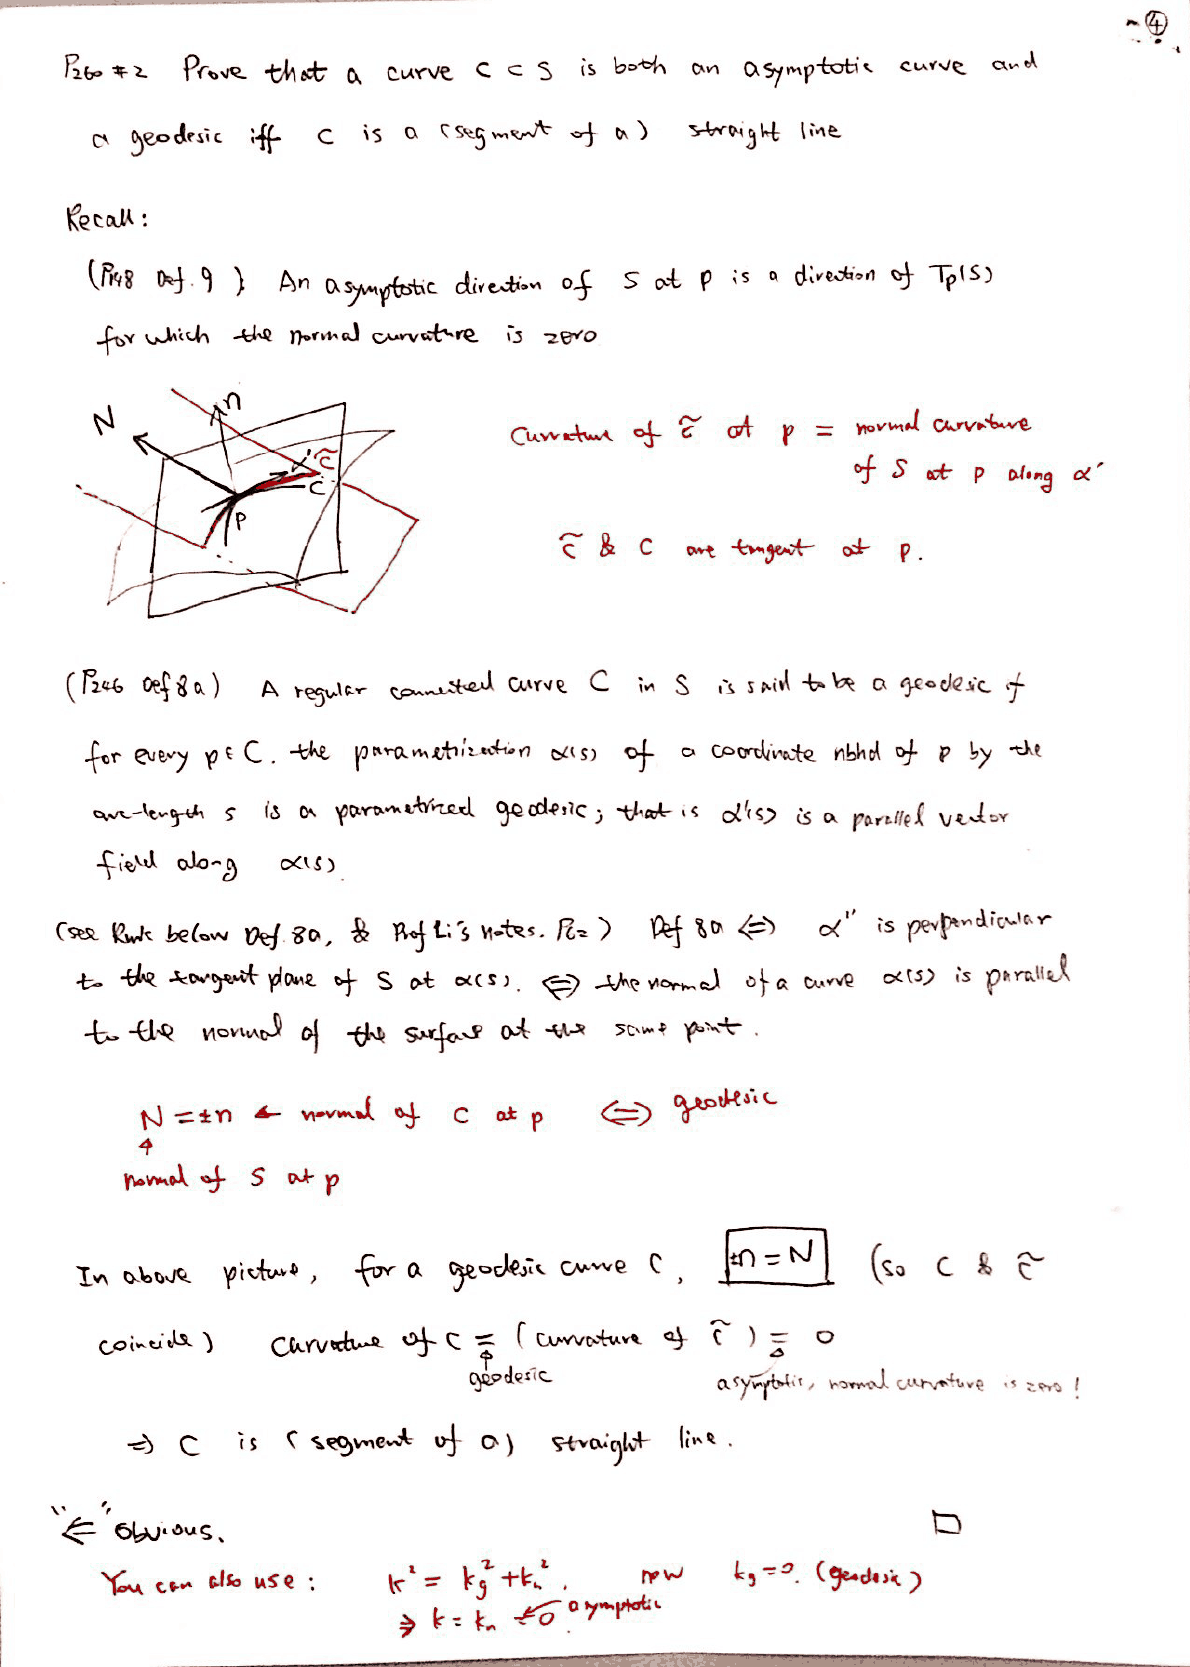 ④
P260 #2 Prove that a curve C ⊂ S is both an asymptotic curve and
a geodesic iff C is a (segment of a) straight line
Recall:
(P148 Def. 9) An asymptotic direction of S at p is a direction of Tp(S)
for which the normal curvature is zero
N n c̃ C P
Curvature of c̃ at p = normal curvature
of S at p along α'
c̃ & C are tangent at p.
(P246 Def 8a) A regular connected curve C in S is said to be a geodesic if
for every p ∈ C, the parametrization α(s) of a coordinate nbhd of p by the
arc-length s is a parametrized geodesic; that is α'(s) is a parallel vector
field along α(s)
(see Rmk below Def. 8a, & Prof Li's notes. ) Def 8a ⇔ α'' is perpendicular
to the tangent plane of S at α(s). ⇔ the normal of a curve α(s) is parallel
to the normal of the surface at the same point.
N = ±n ← normal of C at p ⇔ geodesic
↑
normal of S at p
In above picture, for a geodesic curve C, ±n = N (so C & c̃
coincide) Curvature of C = (curvature of c̃) = 0
geodesic asymptotic, normal curvature is zero!
⇒ C is (segment of a) straight line.
"⇐" Obvious. □
You can also use: k² = kg² + kn², now kg = 0. (geodesic)
⇒ k = kn = 0 asymptotic